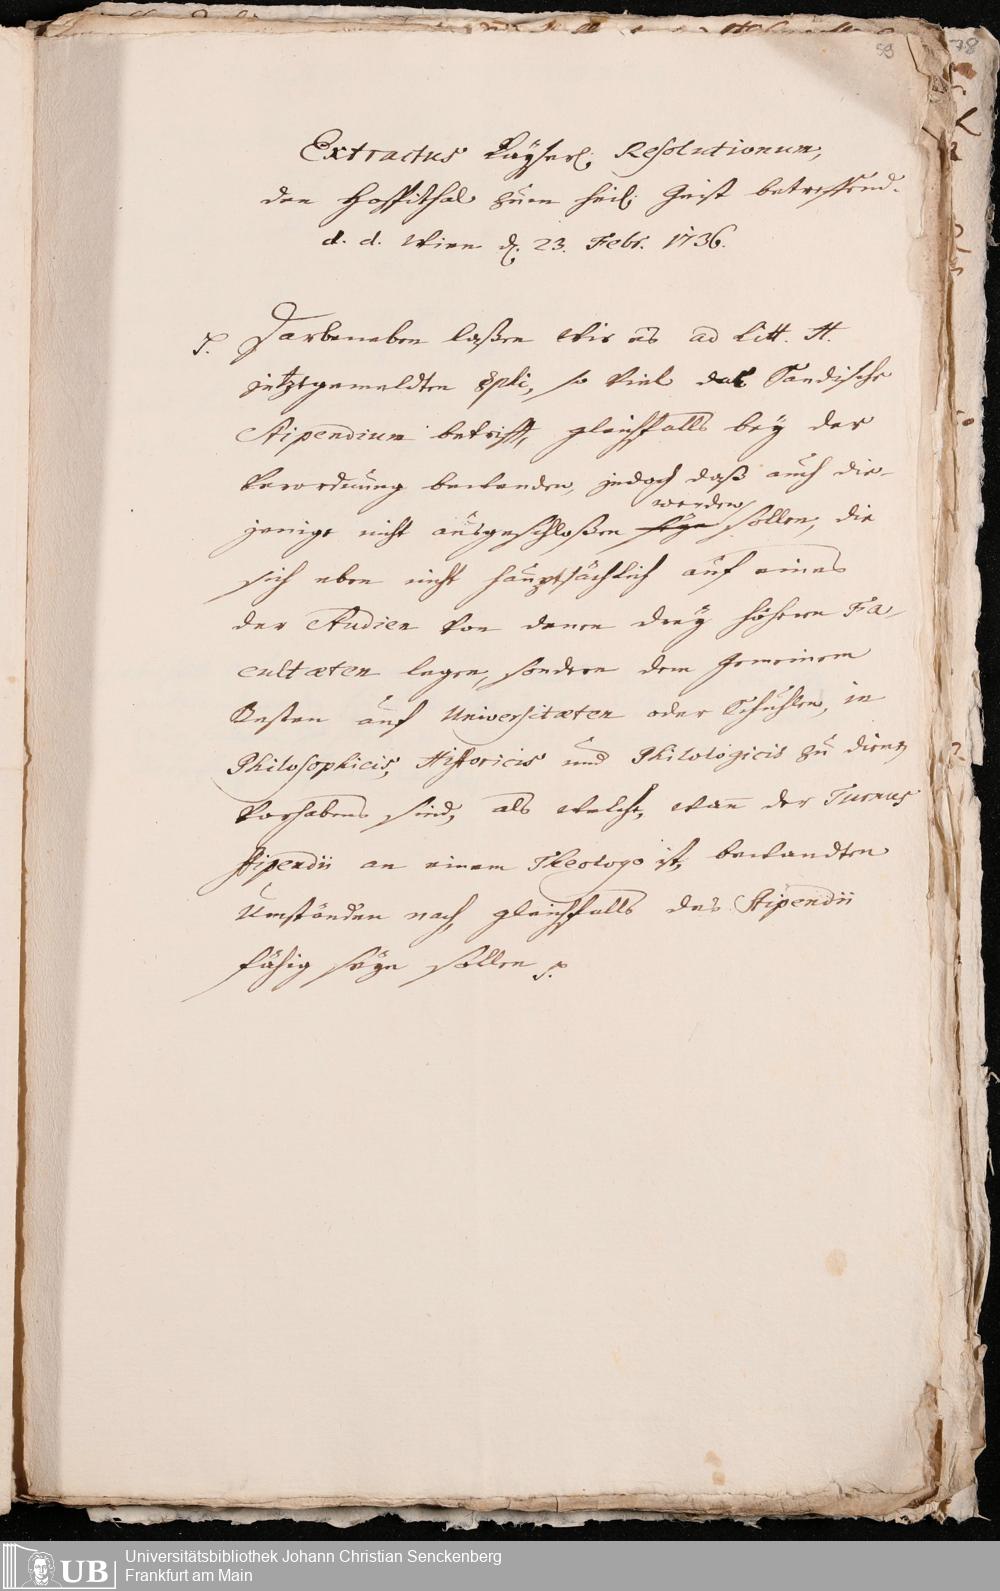 59
78
Extractus Kayserl. Resolutionum,
den Hospithal zum heil. Geist betreffend.
d. d. Wien d. 23. Febr. 1736.
p. Darbeneben laßen Wir es ad Litt. H.
jetztgemeldten spli, so viel das Sandische
Stipendium betrifft, gleichfalls bey der
Verordnung bewenden, jedoch daß auch die-
jenige nicht ausgeschloßen seyn werden sollen, die
sich eben nicht hauptsächlich auf eines
der Studien von denen drey höhern Fa-
cultæten legen, sondern dem gemeinem
Besten auf Universitæten oder Schuhlen, in
Philosophicis, Historicis und Philologicis zu dienen
Vorhabens sind, als welche, wann der Turnus
stipendii an einem Theologo ist, bewandten
Umständen nach, gleichfalls des Stipendii
fähig seyn sollen p.
Universitätsbibliothek Johann Christian Senckenberg
Frankfurt am Main
UB